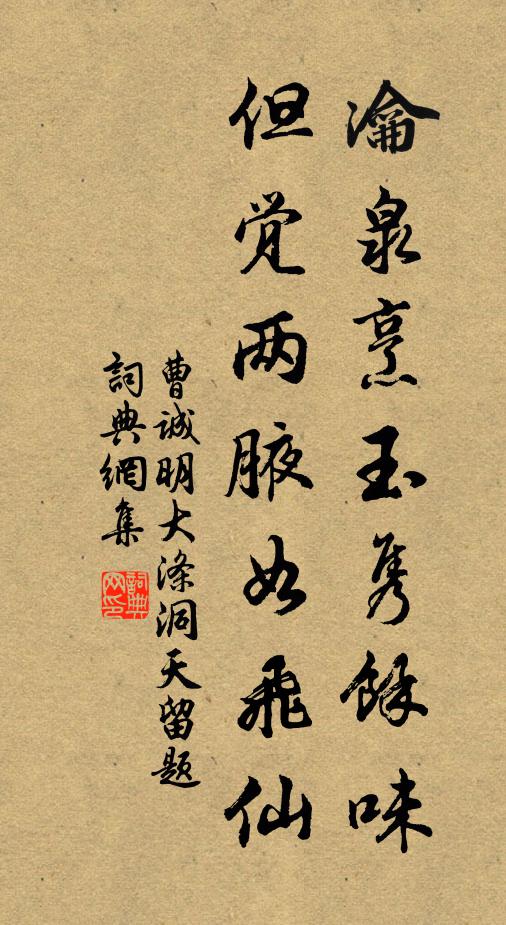 瀹泉烹玉隽餘味
但觉两腋如飛仙
曹诚明大涤洞天留题
詞典網集
詞典网印